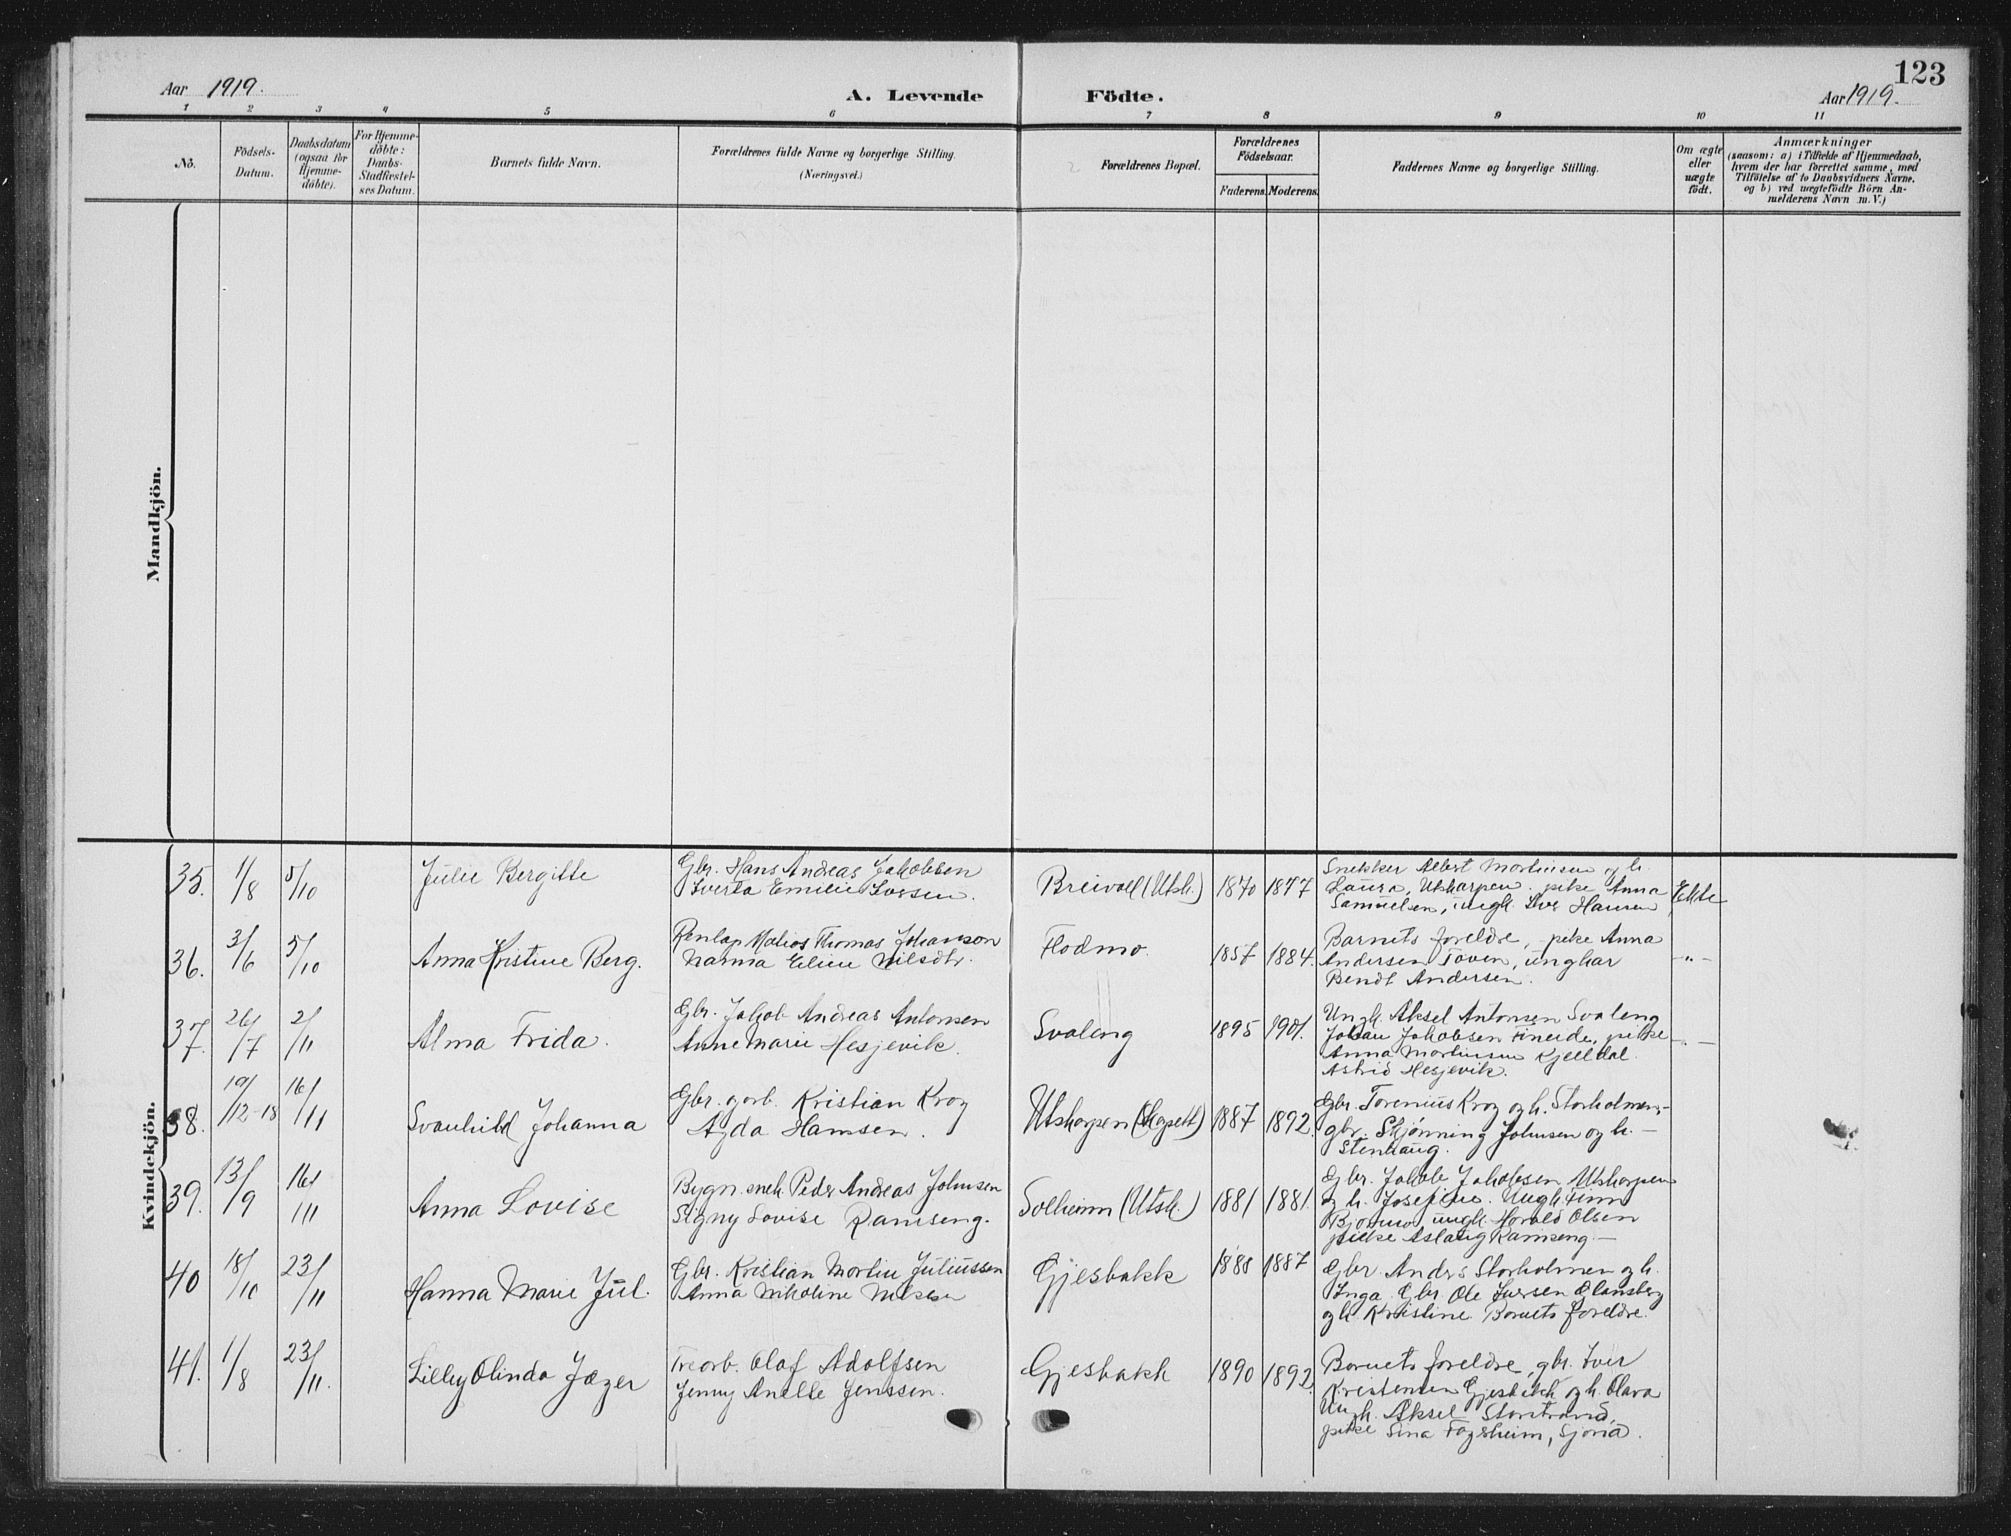 123
Aar 1919.
A. Levende Födte.
Aar 1919.
1 2 3 4 5 6 7 8 9 10 11
No.
Födsels-
Datum.
Daabsdatum
(ogsaa for
Hjemme-
döbte).
For Hjemme-
döbte:
Daabs-
Stadfæstel-
ses Datum.
Barnets fulde Navn.
Forældrenes fulde Navne og borgerlige Stilling.
(Næringsvei.)
Forældrenes Bopæl.
Forældrenes
Födselsaar.
Faderens. Moderens.
Faddernes Navne og borgerlige Stilling.
Om ægte
eller
uægte
födt.
Anmærkninger
(saasom: a) i Tilfælde af Hjemmedaab,
hvem der har forrettet samme, med
Tilföielse af to Daabsvidners Navne,
og b) ved uægtefödte Börn An-
melderens Navn m. V.)
Mandkjön.
Kvindekjön.
35. 1/8 5/10 Julie Bergitte
Gbr. Hans Andreas Jakobsen
Sverta Emilie Iversen.
Breivoll (Utsk.) 1870 1877
Snekker Albert Mortinsen og h
Laura, Utskarpen. pike Anna
Samuelsen, ungk. Iver Hansen
Ekte
36. 3/6 5/10 Anna Kristine Berg.
Matios Thomas Johanson
Nanna Eline Nilsdtr.
Flodmo 1857 1884.
Barnets foreldre, pike Anna
Andersen Toven, ungkar
Bendt Andersen.
-"-
37. 26/7 2/11 Alma Frida.
Gbr. Jakob Andreas Antonsen
Anne Marie Hesjevik.
Svaleng 1895 1901.
Ungk. Aksel Antonsen Svaleng
Johan Jakobsen Fineide, pike
Anna Mortinsen Kjelldal.
Astrid Hesjevik.
-"-
38. 19/12-18 16/11 Svanhild Johanna
Gbr. gorb. Kristian Krog
Agda Hansen.
Utskarpen 1887 1892.
Gbr. Torenius Krog og h. Storholmen,-
gbr. Skjønning Johnsen og h. -
Stenhaug.
39. 13/9 16/11 Anna Lovise
Bygn. snek. Peder Andreas Johnsen
Signy Lovise Ramseng.
Solheim (Utsk.) 1881 1881.
Gbr. Jakob Jakobsen Utskarpen
og h. Josefine. Ungk. Finn
Bjornmo, ungk. Harald Olsen
pike Aslaug Ramseng. -
40 18/10 23/11 Hanna Marie Jul.
Gbr. Kristian Mortin Juliussen
Anna Nikoline Nilsen
Gjesbakk 1888 1887
Gbr Anders Storholmen og h.
Inga. Gbr. Ole Iversen
og h Kristine Barnets foreldre.
41. 1/8 23/11. Lilley Olinda Jæger
Treorb. Olaf Adolfsen
Jenny Anelle Jenssen.
Gjesbakk 1890 1892.
Barnets foreldre, gbr. Iver
Kristensen Gjesbakk og h. Olava
Ungk. Aksel Storstrand,
pike Sina Fagerheim, Sjona.